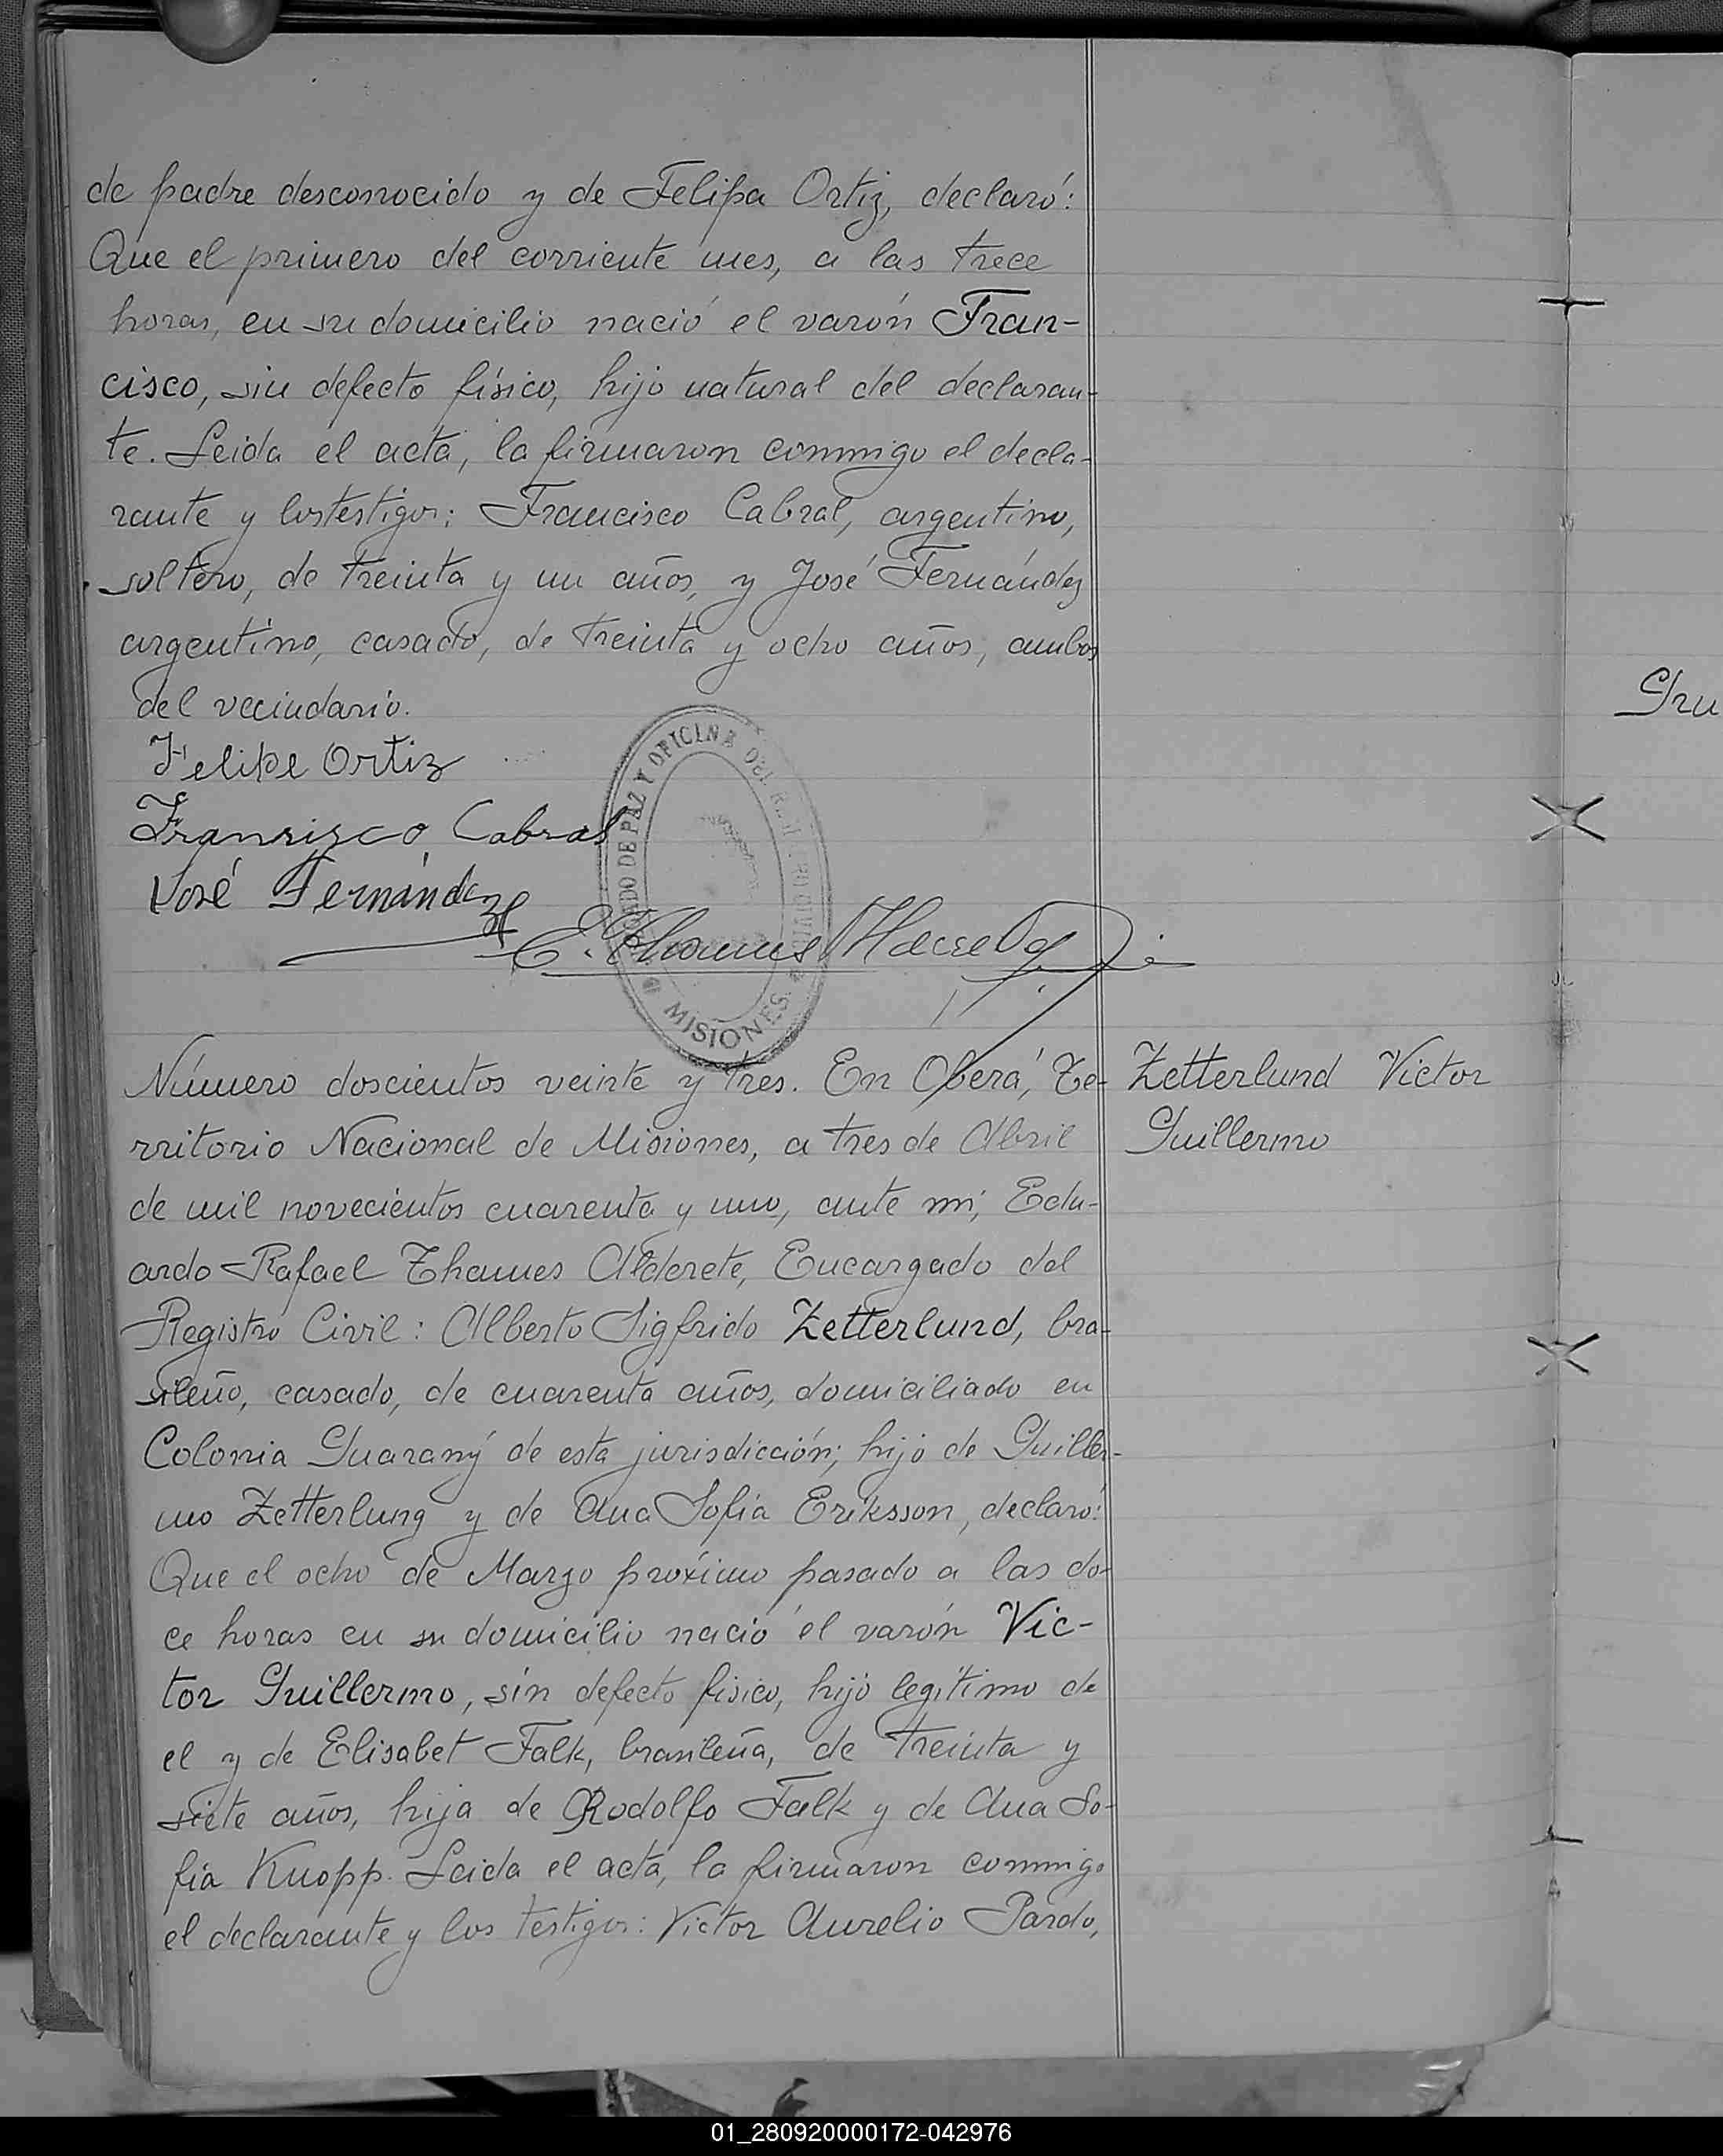 de padre desconocido y de Felipa Ortiz, declaró:
Que el primero del corriente mes, a las trece
horas, en su domicilio nació el varón Fran-
cisco, sin defecto físico, hijo natural del declaran-
te. Leida el acta, la firmaron conmigo el decla-
rante y los testigos: Francisco Cabral, argentino,
soltero, de treinta y un años, y José Fernández
argentino, casado, de treinta y ocho años, ambos
del vecindario.
Felipe Ortiz
Fransisco Cabral
José Fernández
JUZGADO DE PAZ Y OFICINA DEL REGISTRO CIVIL
MISIONES
E. Thames Alderete
Número doscientos veinte y tres. En Oberá, Te-
rritorio Nacional de Misiones, a tres de Abril
de mil novecientos cuarenta y uno, ante mi, Edu-
ardo Rafael Thames Alderete, Encargado del
Registro Civil: Alberto Sigfrido Zetterlund, bra-
sileño, casado, de cuarenta años, domiciliado en
Colonia Guaraný de esta jurisdicción; hijo de Guiller-
mo Zetterlung y de Ana Sofia Eriksson, declaró:
Que el ocho de Marzo próximo pasado a las do-
ce horas en su domicilio nació el varón Vic-
tor Guillermo, sin defecto fisico, hijo legítimo de
el y de Elisabet Falk, brasileña, de treinta y
siete años, hija de Rodolfo Falk y de Ana So-
fia Knopp. Leida el acta, la firmaron conmigo
el declarante y los testigos: Victor Aurelio Pardo,
Zetterlund Victor
Guillermo
Gru
01_280920000172-042976